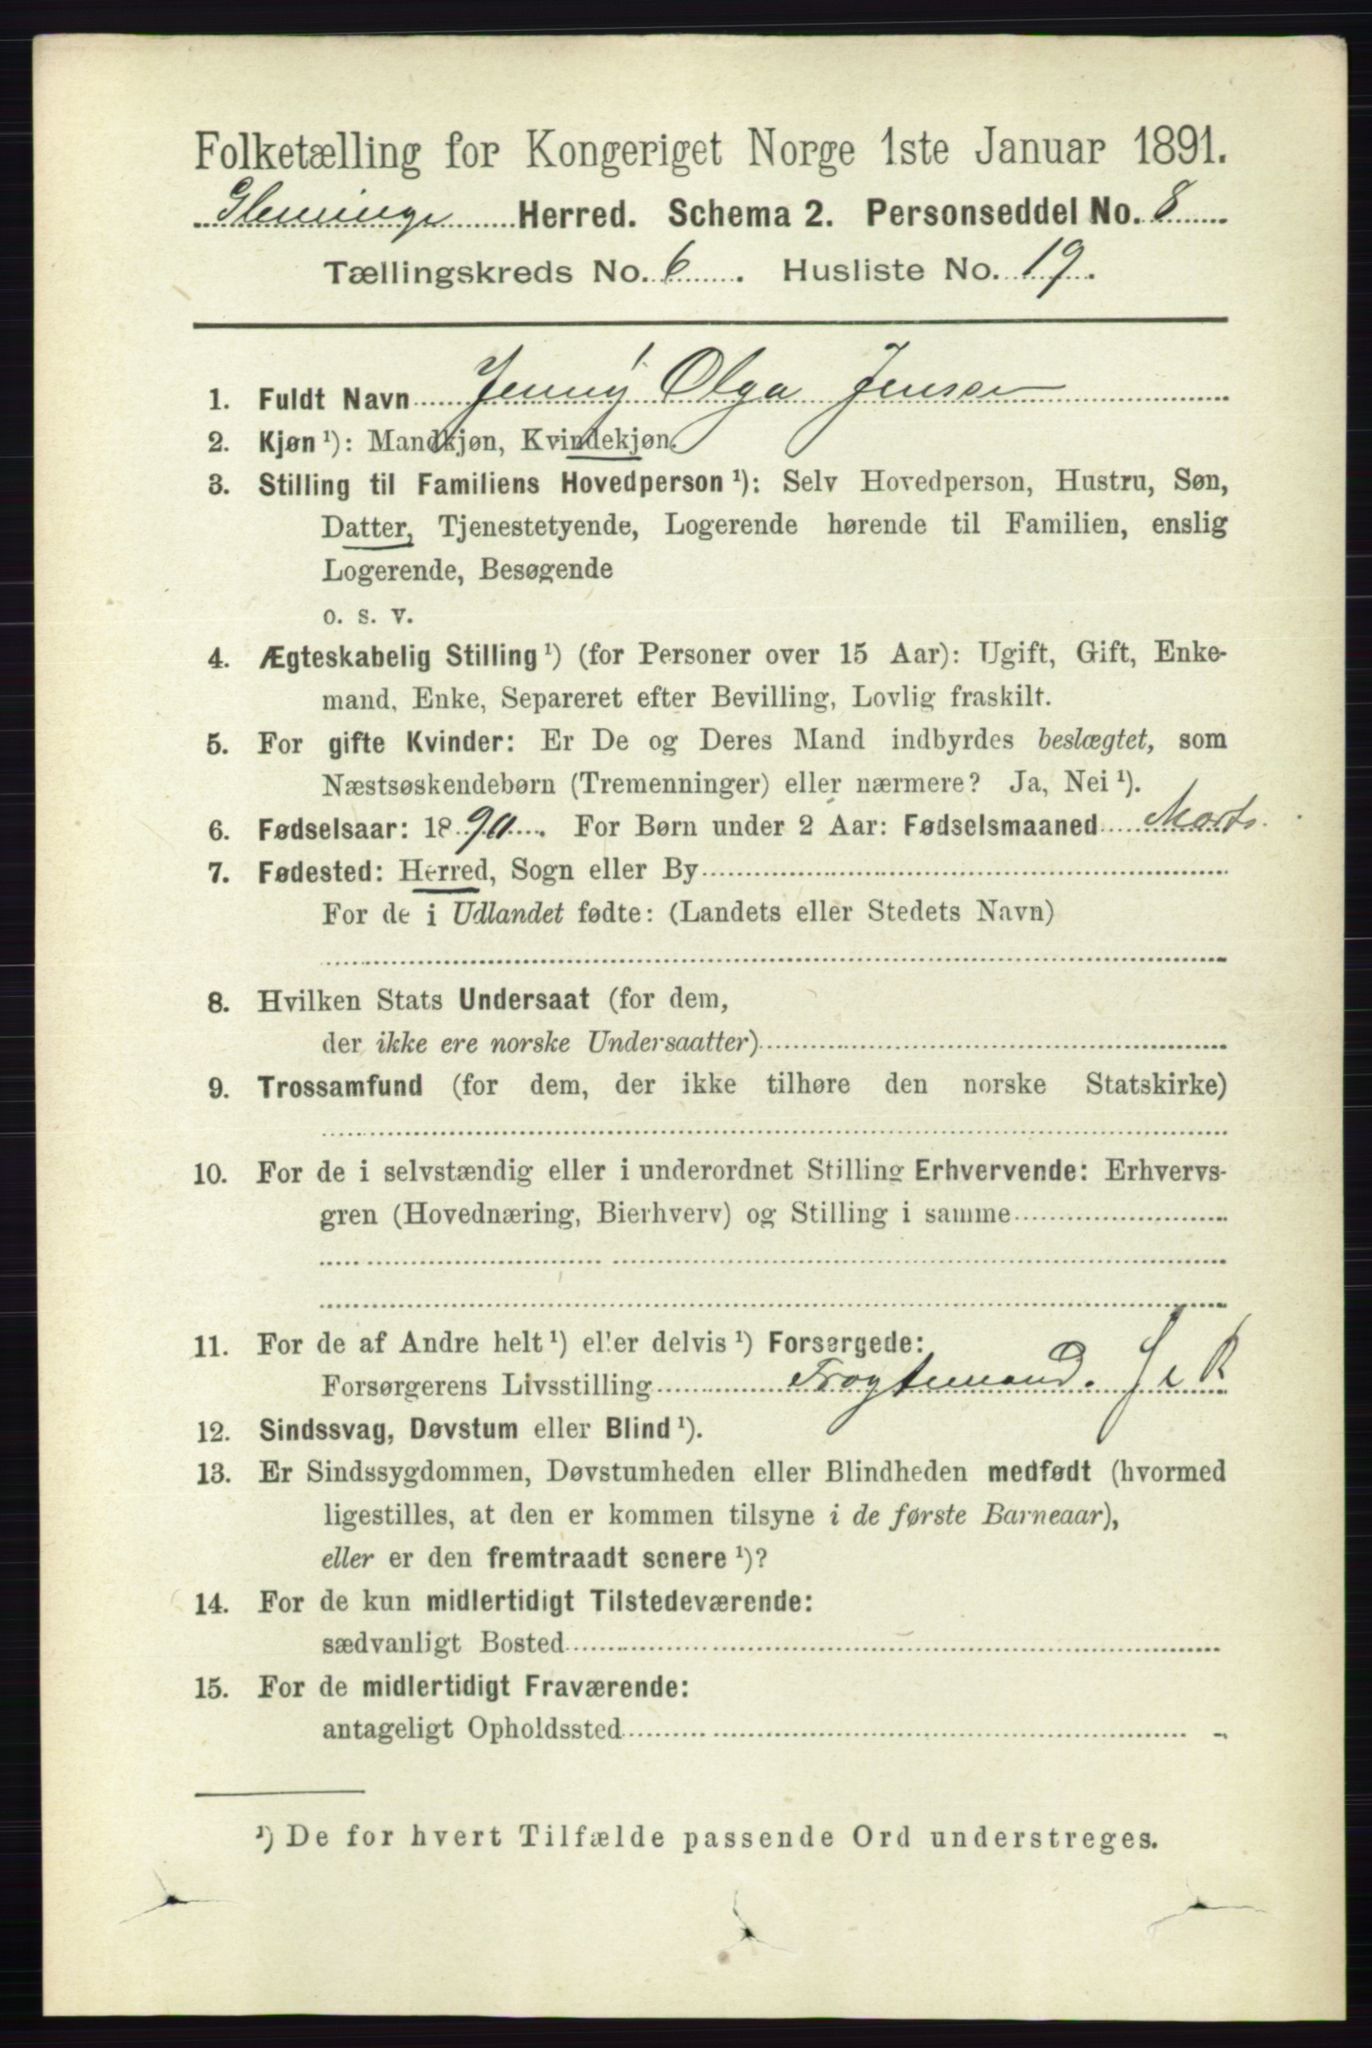 Folketælling for Kongeriget Norge 1ste Januar 1891.
Glemminge Herred. Schema 2. Personseddel No. 8
Tællingskreds No. 6. Husliste No. 19.
1. Fuldt Navn Jenny Olga Jensen
2. Kjøn ¹): Mandkjøn, Kvindekjøn.
3. Stilling til Familiens Hovedperson ¹): Selv Hovedperson, Hustru, Søn,
Datter, Tjenestetyende, Logerende hørende til Familien, enslig
Logerende, Besøgende
o. s. v.
4. Ægteskabelig Stilling ¹) (for Personer over 15 Aar): Ugift, Gift, Enke-
mand, Enke, Separeret efter Bevilling, Lovlig fraskilt.
5. For gifte Kvinder: Er De og Deres Mand indbyrdes beslægtet, som
Næstsøskendebørn (Tremenninger) eller nærmere? Ja, Nei ¹).
6. Fødselsaar: 1890. For Børn under 2 Aar: Fødselsmaaned Marts.
7. Fødested: Herred, Sogn eller By
For de i Udlandet fødte: (Landets eller Stedets Navn)
8. Hvilken Stats Undersaat (for dem,
der ikke ere norske Undersaatter)
9. Trossamfund (for dem, der ikke tilhøre den norske Statskirke)
10. For de i selvstændig eller i underordnet Stilling Erhvervende: Erhvervs-
gren (Hovednæring, Bierhverv) og Stilling i samme
11. For de af Andre helt ¹) eller delvis ¹) Forsørgede:
Forsørgerens Livsstilling
12. Sindssvag, Døvstum eller Blind ¹).
13. Er Sindssygdommen, Døvstumheden eller Blindheden medfødt (hvormed
ligestilles, at den er kommen tilsyne i de første Barneaar),
eller er den fremtraadt senere ¹)?
14. For de kun midlertidigt Tilstedeværende:
sædvanligt Bosted
15. For de midlertidigt Fraværende:
antageligt Opholdssted
¹) De for hvert Tilfælde passende Ord understreges.